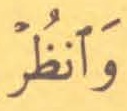 وَٱنظُرۡ